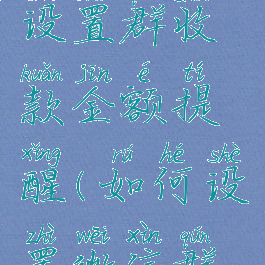 设置群收
kuǎn jīn é tí
款金额提
xǐng rú hé shè
醒(如何设
zhì wēi xìn qún
置微信群